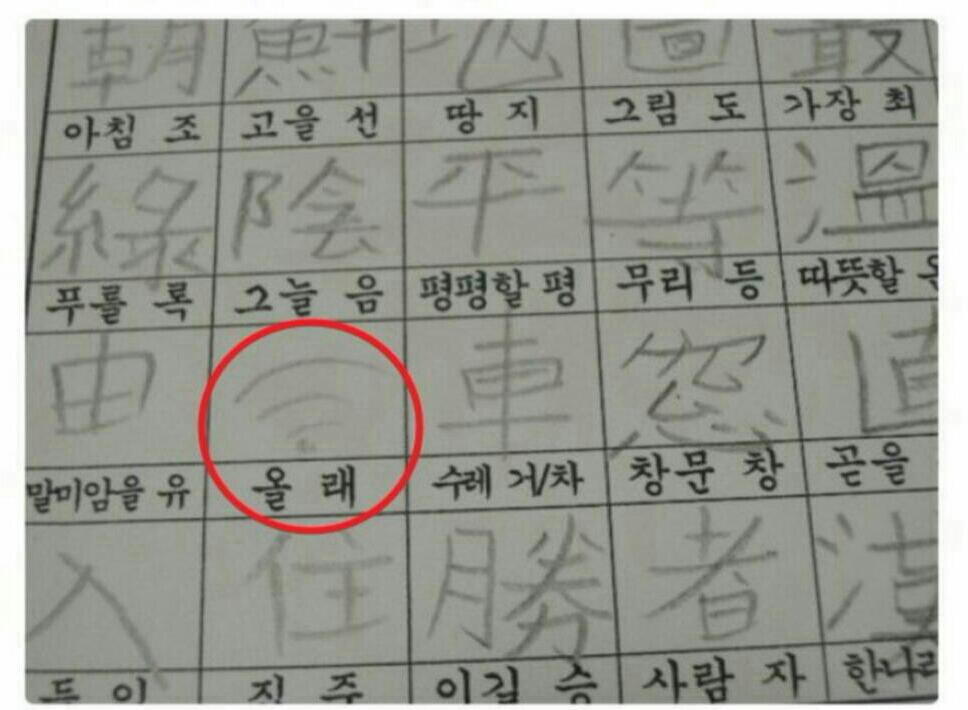 朝 鮮 地 圖 最
아침 조 고을 선 땅 지 그림 도 가장 최
綠 陰 平 等 溫
푸를 록 그늘 음 평평할 평 무리 등 따뜻할 온
由 車 窓 直
말미암을 유 올 래 수레 거/차 창문 창 곧을
入 住 勝 者 漢
들 이 집 주 이길 승 사람 자 한나라